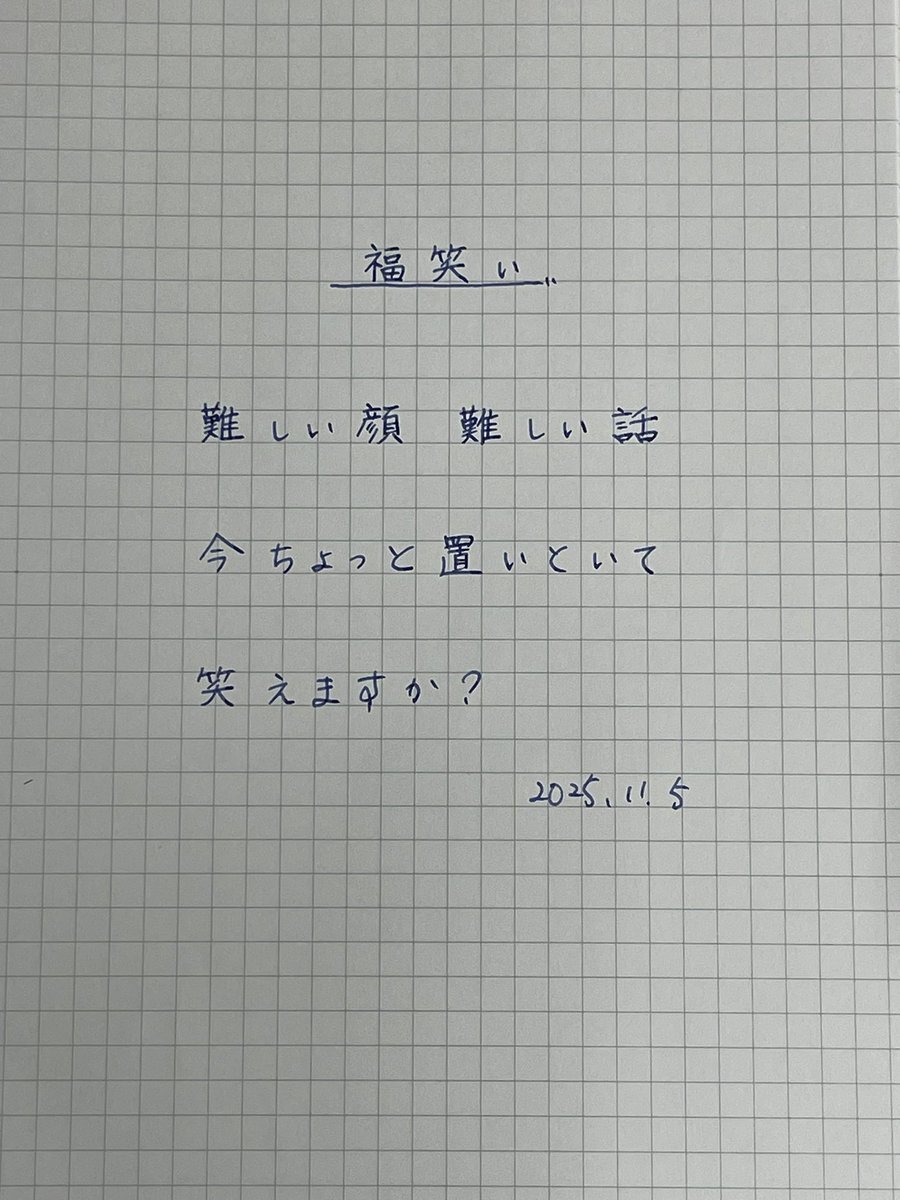 福笑い
難しい顔 難しい話
今ちょっと置いといて
笑えますか?
2025.11.5